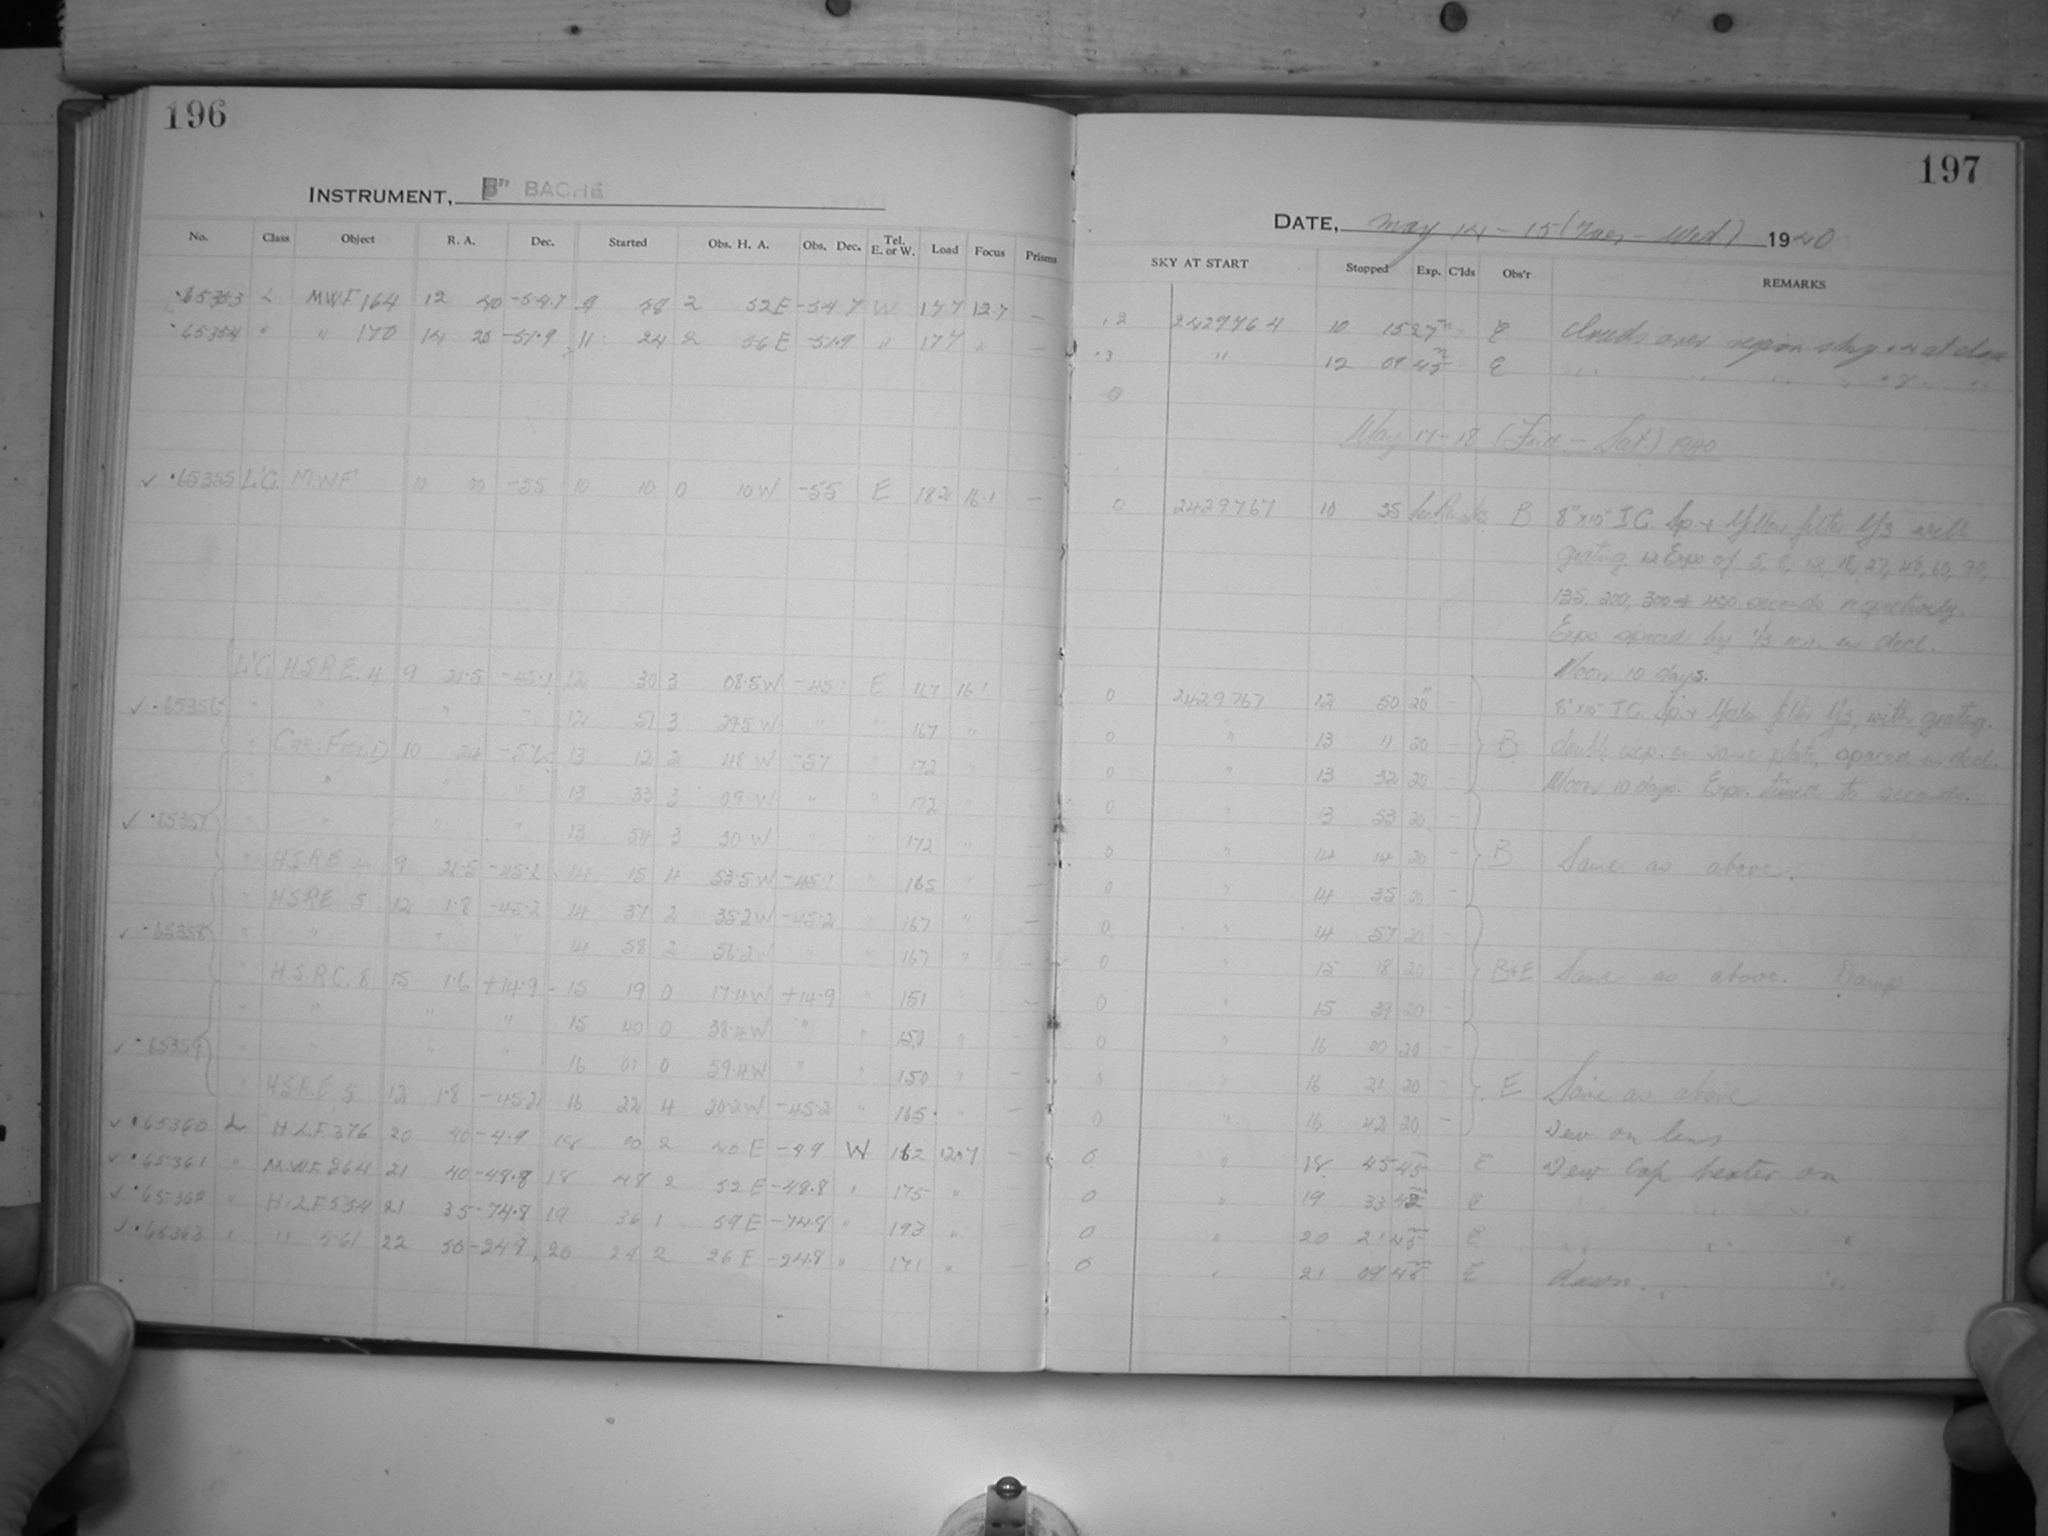 196
INSTRUMENT, 8" BACHE
No. Class Object R. A. Dec. Started Obs. H. A. Obs. Dec. Tel. E. or W. Load Focus Prisms
65353 L M.W.F 164 12 40 -54.7 9 48 2 52 E -54.7 W 177 12.7 —
65354 " " 170 14 20 -51.9 11 24 2 56 E -51.9 " 177 " —
✓ 65355 L'C. M.W.F -55 10 10 0 10 W -55 E 182 16.1 —
L'C. H.S.R.E. 4 9 21.5 -45.1 12 30 3 08.5 W -45.1 E 167 16.1 —
✓ 65356 " " " " 12 51 3 29.5 W " " 167 "
" CAR. FIELD 10 24 13 12 2 48 W -57 " 172 "
" " " " 13 33 3 09 W " " 172 "
✓ 65357 " " " " 13 54 3 30 W " " 172 "
" H.S.R.E 4 9 21.5 -45.1 14 15 4 53.5 W -45.1 " 165 " —
" H.S.R.E 5 12 1.8 -45.2 14 37 2 35.2 W -45.2 " 167 " —
✓ 65358 " " " " 14 58 2 56.2 W " " 167 " —
" H.S.R.C. 8 15 1.6 +14.9 15 19 0 17.4 W +14.9 " 151 —
" " " " 15 40 0 38.4 W " " 150 " —
✓ 65359 " " " " 16 01 0 59.4 W " " 150 " —
" H.S.R.E 5 12 1.8 -45.2 16 22 4 20.2 W -45.2 " 165 " —
✓ 65360 L H.L.F. 376 20 40 -4.9 18 00 2 40 E -4.9 W 162 12.7 —
✓ 65361 " M.W.F. 264 21 40 -49.8 18 48 2 52 E -49.8 " 175 "
✓ 65362 " H.L.F. 554 21 35 -74.8 19 36 1 59 E -74.8 " 193 " —
✓ 65363 " " 561 22 50 -24.9 20 24 2 26 E -24.9 " 171 " —
197
DATE, May 14 - 15 (Tues - Wed) 1940
SKY AT START Stopped Exp. C'lds Obs'r REMARKS
.2 2429764 10 15 27m E Clouds over region at close
.3 " 12 09 45m E
0
May 17-18 (Frid. - Sat.) 1940
0 2429767 10 35 See Remarks B 8"x10" I.C. Sp. + Yellow filter 1/3 with
grating. 12 Exps of 5, 8, 12, 18, 27, 40, 60, 90,
135, 200, 300 + 450 seconds respectively.
Exps. spaced by 1/3 m.m. in decl.
Moon 10 days.
0 2429767 12 50 20m — 8"x10" I.C. Sp. + Yellow filter 1/3, with grating.
0 " 13 11 20 — B double exp. on same plate, spaced in decl.
0 " 13 32 20 — Moon 10 days. Expo. timed to seconds.
0 " 13 53 20 —
0 " 14 14 20 — B Same as above.
0 " 14 35 20 —
0 " 14 57 20 —
0 " 15 18 20 — B+E Same as above. Damp
0 " 15 39 20 —
0 " 16 00 20 —
0 " 16 21 20 — E Same as above
0 " 16 42 20 — Dew on lens
0 " 18 45 45m E Dew Cap heater on
0 " 19 33 45m E " " " "
0 " 20 21 45m E " " "
0 " 21 09 45m E dawn.